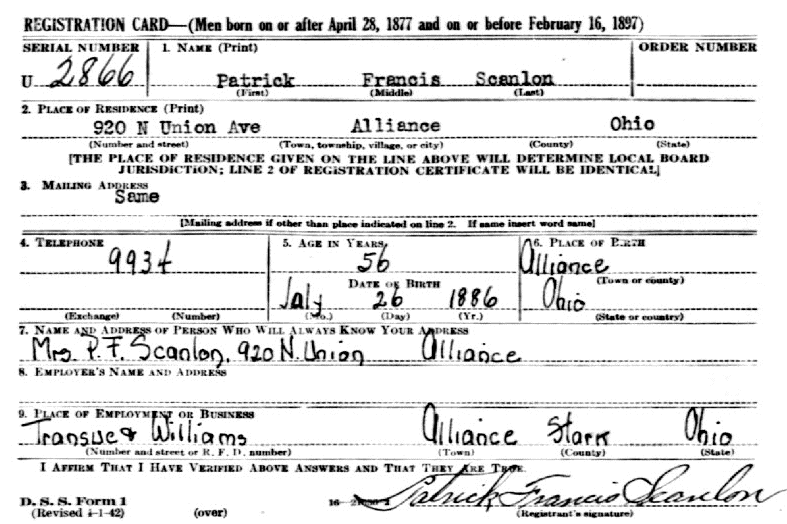 REGISTRATION CARD—(Men born on or after April 28, 1877 and on or before February 16, 1897)
SERIAL NUMBER 1. NAME (Print) ORDER NUMBER
U 2866 Patrick Francis Scanlon
(First) (Middle) (Last)
2. PLACE OF RESIDENCE (Print)
920 N Union Ave Alliance Ohio
(Number and street) (Town, township, village, or city) (County) (State)
[THE PLACE OF RESIDENCE GIVEN ON THE LINE ABOVE WILL DETERMINE LOCAL BOARD
JURISDICTION; LINE 2 OF REGISTRATION CERTIFICATE WILL BE IDENTICAL]
3. MAILING ADDRESS
Same
[Mailing address if other than place indicated on line 2. If same insert word same]
4. TELEPHONE 5. AGE IN YEARS 6. PLACE OF BIRTH
9934 56 Alliance
DATE OF BIRTH (Town or county)
July 26 1886 Ohio
(Exchange) (Number) (Mo.) (Day) (Yr.) (State or country)
7. NAME AND ADDRESS OF PERSON WHO WILL ALWAYS KNOW YOUR ADDRESS
Mrs. P. F. Scanlon, 920 N. Union Alliance
8. EMPLOYER'S NAME AND ADDRESS
9. PLACE OF EMPLOYMENT OR BUSINESS
Transue & Williams Alliance Stark Ohio
(Number and street or R. F. D. number) (Town) (County) (State)
I AFFIRM THAT I HAVE VERIFIED ABOVE ANSWERS AND THAT THEY ARE TRUE.
Patrick Francis Scanlon
D. S. S. Form 1
(Revised 4-1-42) (over) (Registrant's signature)